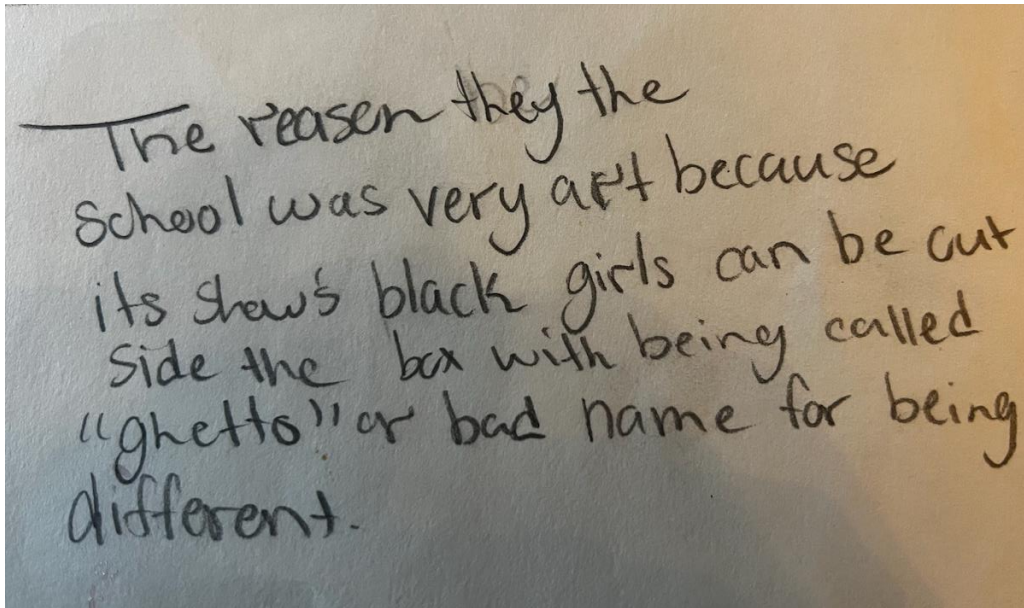 The reason they the
School was very art because
its show's black girls can be out
side the box with being called
"ghetto" or bad name for being
different.